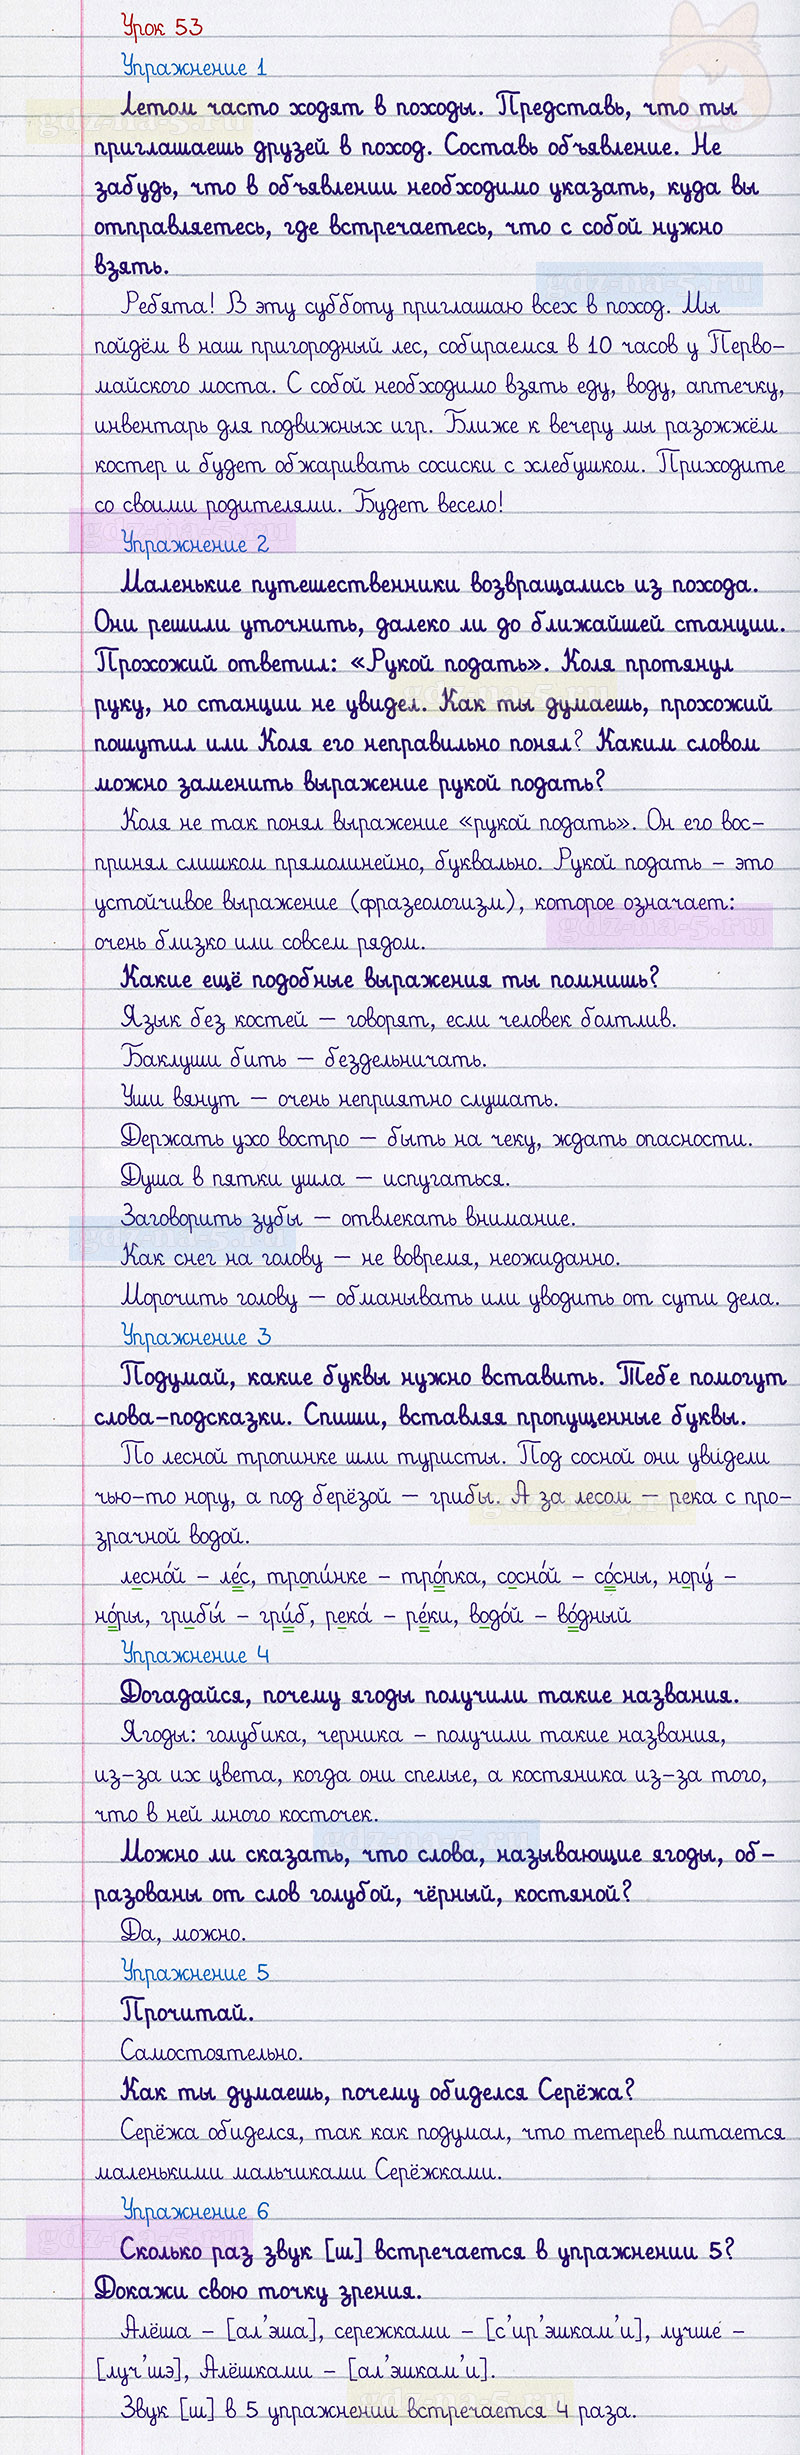 Урок 53
Упражнение 1
Летом часто ходят в походы. Представь, что ты
приглашаешь друзей в поход. Составь объявление. Не
забудь, что в объявлении необходимо указать, куда вы
отправляетесь, где встречаетесь, что с собой нужно
взять.
Ребята! В эту субботу приглашаю всех в поход. Мы
пойдём в наш пригородный лес, собираемся в 10 часов у Перво-
майского моста. С собой необходимо взять еду, воду, аптечку,
инвентарь для подвижных игр. Ближе к вечеру мы разожжём
костер и будет обжаривать сосиски с хлебушком. Приходите
со своими родителями. Будет весело!
Упражнение 2
Маленькие путешественники возвращались из похода.
Они решили уточнить, далеко ли до ближайшей станции.
Прохожий ответил: «Рукой подать». Коля протянул
руку, но станции не увидел. Как ты думаешь, прохожий
пошутил или Коля его неправильно понял? Каким словом
можно заменить выражение рукой подать?
Коля не так понял выражение «рукой подать». Он его вос-
принял слишком прямолинейно, буквально. Рукой подать – это
устойчивое выражение (фразеологизм), которое означает:
очень близко или совсем рядом.
Какие ещё подобные выражения ты помнишь?
Язык без костей — говорят, если человек болтлив.
Баклуши бить — бездельничать.
Уши вянут — очень неприятно слушать.
Держать ухо востро — быть на чеку, ждать опасности.
Душа в пятки ушла — испугаться.
Заговорить зубы — отвлекать внимание.
Как снег на голову — не вовремя, неожиданно.
Морочить голову — обманывать или уводить от сути дела.
Упражнение 3
Подумай, какие буквы нужно вставить. Тебе помогут
слова-подсказки. Спиши, вставляя пропущенные буквы.
По лесной тропинке шли туристы. Под сосной они увидели
чью-то нору, а под берёзой — грибы. А за лесом — река с про-
зрачной водой.
лесно́й – ле́с, тропи́нке – тро́пка, сосно́й – со́сны, нору́ –
но́ры, грибы́ – гри́б, река́ – ре́ки, водо́й – во́дный
Упражнение 4
Догадайся, почему ягоды получили такие названия.
Ягоды: голубика, черника – получили такие названия,
из-за их цвета, когда они спелые, а костяника из-за того,
что в ней много косточек.
Можно ли сказать, что слова, называющие ягоды, об-
разованы от слов голубой, чёрный, костяной?
Да, можно.
Упражнение 5
Прочитай.
Самостоятельно.
Как ты думаешь, почему обиделся Серёжа?
Серёжа обиделся, так как подумал, что тетерев питается
маленькими мальчиками Серёжками.
Упражнение 6
Сколько раз звук [ш] встречается в упражнении 5?
Докажи свою точку зрения.
Алёша – [ал'эша], сережками – [с'ир'эшкам'и], лучше –
[луч'шэ], Алёшками – [ал'эшкам'и].
Звук [ш] в 5 упражнении встречается 4 раза.
gdz-na-5.ru
gdz-na-5.ru
gdz-na-5.ru
gdz-na-5.ru
gdz-na-5.ru
gdz-na-5.ru
gdz-na-5.ru
gdz-na-5.ru
gdz-na-5.ru
gdz-na-5.ru